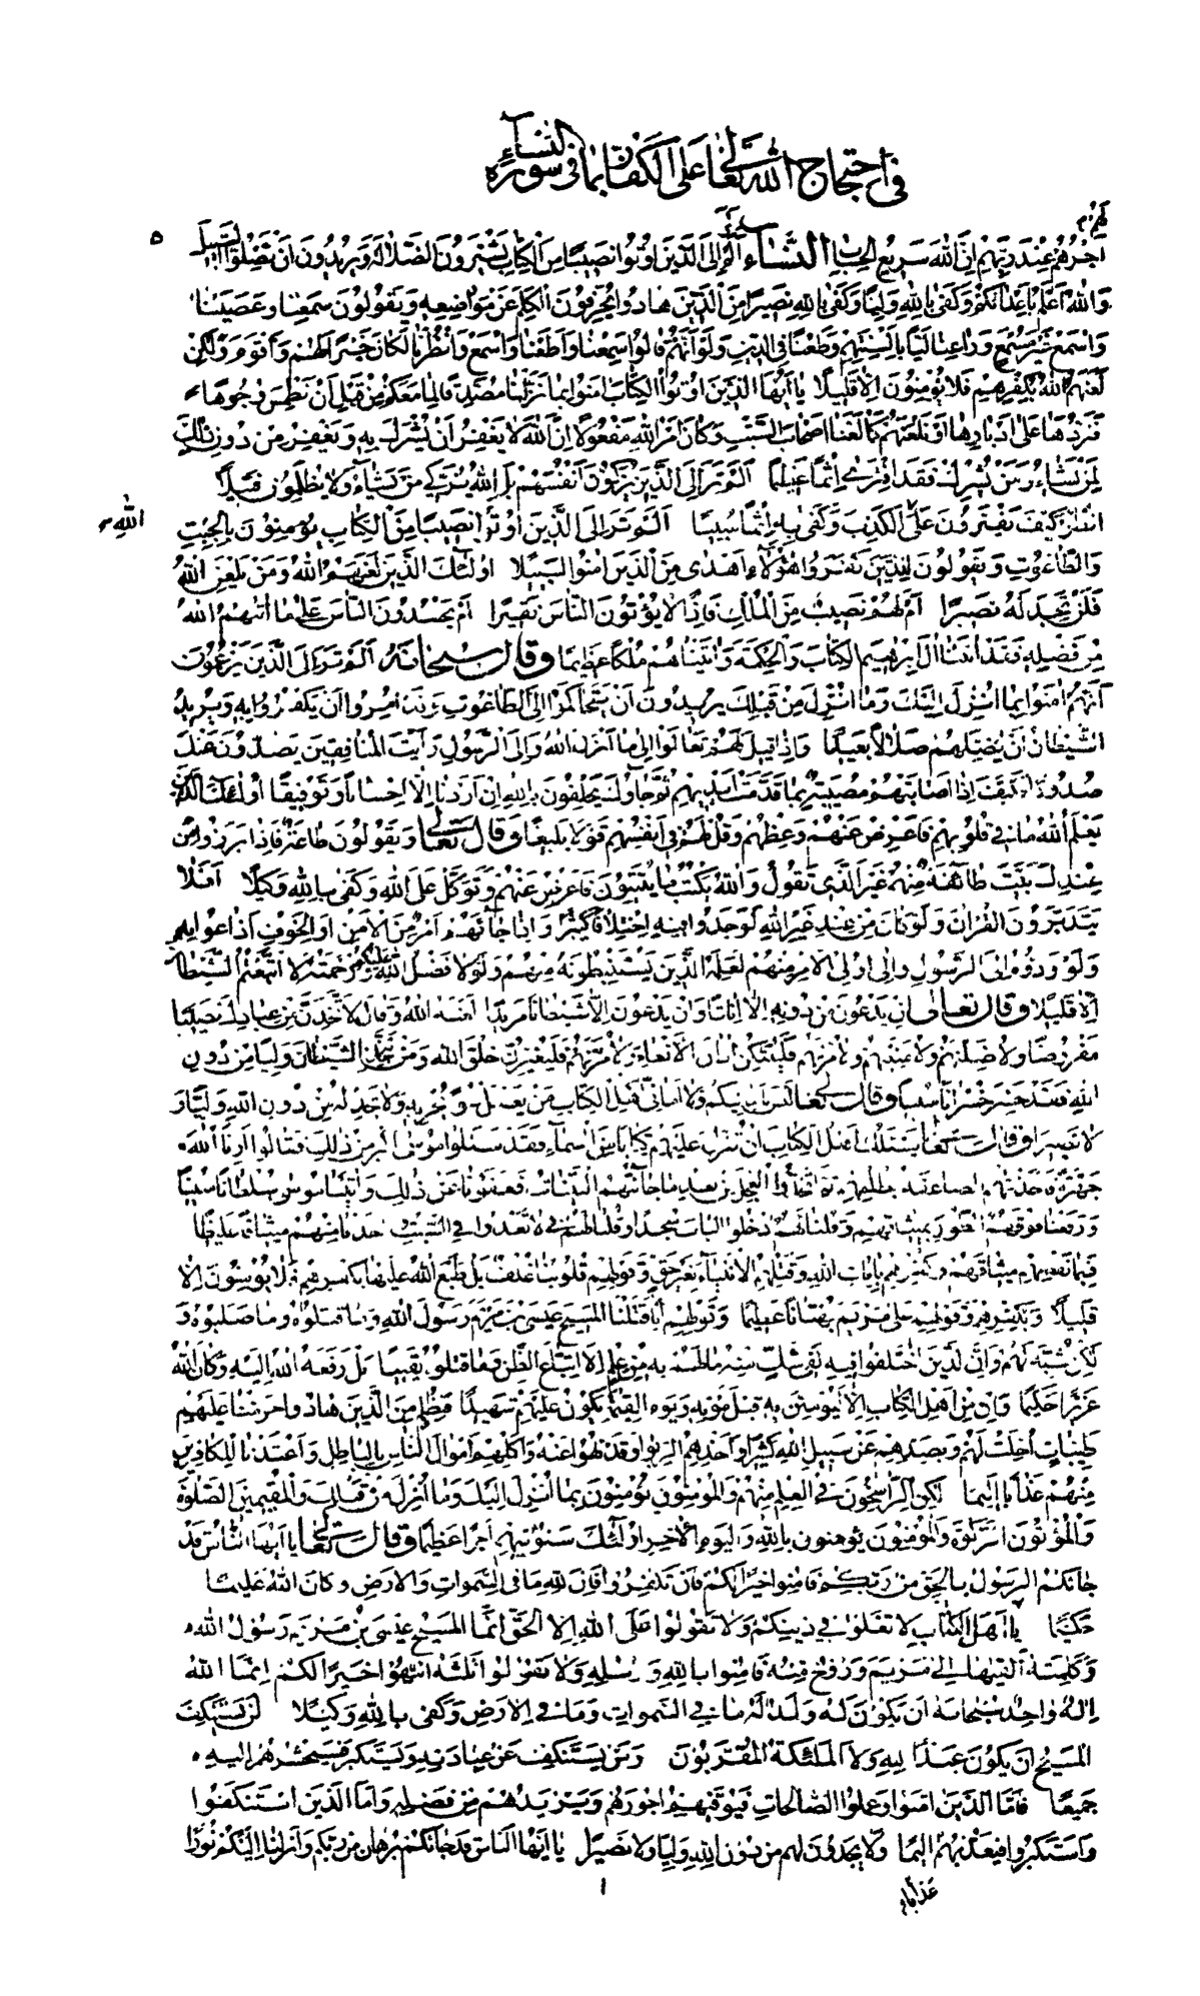 في احتجاج الله تعالى على الكفار بما في سورة النساء
لهم
٥
أجرهم عند ربهم إن الله سريع الحساب النساء ألم تر إلى الذين أوتوا نصيبا من الكتاب يشترون الضلالة ويريدون أن تضلوا السبيل
والله أعلم بأعدائكم وكفى بالله وليا وكفى بالله نصيرا من الذين هادوا يحرفون الكلم عن مواضعه ويقولون سمعنا وعصينا
واسمع غير مسمع وراعنا ليا بألسنتهم وطعنا في الدين ولو أنهم قالوا سمعنا وأطعنا واسمع وانظرنا لكان خيرا لهم وأقوم ولكن
لعنهم الله بكفرهم فلا يؤمنون إلا قليلا يا أيها الذين أوتوا الكتاب آمنوا بما نزلنا مصدقا لما معكم من قبل أن نطمس وجوها
فنردها على أدبارها أو نلعنهم كما لعنا أصحاب السبت وكان أمر الله مفعولا إن الله لا يغفر أن يشرك به ويغفر من دون ذلك
لمن يشاء ومن يشرك فقد افترى إثما عظيما ألم تر إلى الذين يزكون أنفسهم بل الله يزكي من يشاء ولا يظلمون فتيلا
الله
انظر كيف يفترون على الكذب وكفى به إثما مبينا ألم تر إلى الذين أوتوا نصيبا من الكتاب يؤمنون بالجبت
والطاغوت ويقولون للذين كفروا هؤلاء أهدى من الذين آمنوا السبيلا أولئك الذين لعنهم الله ومن يلعن الله
فلن تجد له نصيرا أم لهم نصيب من الملك فإذا لا يؤتون الناس نقيرا أم يحسدون الناس على ما آتاهم الله
من فضله فقد آتينا آل إبراهيم الكتاب والحكمة وآتيناهم ملكا عظيما وقال سبحانه ألم تر إلى الذين يزعمون
أنهم آمنوا بما أنزل إليك وما أنزل من قبلك يريدون أن يتحاكموا إلى الطاغوت وقد أمروا أن يكفروا به ويريد
الشيطان أن يضلهم ضلالا بعيدا وإذا قيل لهم تعالوا إلى ما أنزل الله وإلى الرسول رأيت المنافقين يصدون عنك
صدودا فكيف إذا أصابتهم مصيبة بما قدمت أيديهم ثم جاؤك يحلفون بالله إن أردنا إلا إحسانا وتوفيقا أولئك الذين
يعلم الله ما في قلوبهم فأعرض عنهم وعظهم وقل لهم في أنفسهم قولا بليغا وقال تعالى ويقولون طاعة فإذا برزوا من
عندك بيت طائفة منهم غير الذي تقول والله يكتب ما يبيتون فأعرض عنهم وتوكل على الله وكفى بالله وكيلا أفلا
يتدبرون القرآن ولو كان من عند غير الله لوجدوا فيه اختلافا كثيرا وإذا جاءهم أمر من الأمن أو الخوف أذاعوا به
ولو ردوه إلى الرسول وإلى أولي الأمر منهم لعلمه الذين يستنبطونه منهم ولولا فضل الله عليكم ورحمته لاتبعتم الشيطان
إلا قليلا وقال تعالى إن يدعون من دونه إلا إناثا وإن يدعون إلا شيطانا مريدا لعنه الله وقال لأتخذن من عبادك نصيبا
مفروضا ولأضلنهم ولأمنينهم ولآمرنهم فليبتكن آذان الأنعام ولآمرنهم فليغيرن خلق الله ومن يتخذ الشيطان وليا من دون
الله فقد خسر خسرانا مبينا وقال تعالى ليس بأمانيكم ولا أماني أهل الكتاب من يعمل سوء يجز به ولا يجد له من دون الله وليا و
لا نصيرا وقال تعالى يسئلك أهل الكتاب أن تنزل عليهم كتابا من السماء فقد سئلوا موسى أكبر من ذلك فقالوا أرنا الله
جهرة فأخذتهم الصاعقة بظلمهم ثم اتخذوا العجل من بعد ما جاءتهم البينات فعفونا عن ذلك وآتينا موسى سلطانا مبينا
ورفعنا فوقهم الطور بميثاقهم وقلنا لهم ادخلوا الباب سجدا وقلنا لهم لا تعدوا في السبت وأخذنا منهم ميثاقا غليظا
فبما نقضهم ميثاقهم وكفرهم بآيات الله وقتلهم الأنبياء بغير حق وقولهم قلوبنا غلف بل طبع الله عليها بكفرهم فلا يؤمنون إلا
قليلا وبكفرهم وقولهم على مريم بهتانا عظيما وقولهم إنا قتلنا المسيح عيسى بن مريم رسول الله وما قتلوه وما صلبوه و
لكن شبه لهم وإن الذين اختلفوا فيه لفي شك منه ما لهم به من علم إلا اتباع الظن وما قتلوه يقينا بل رفعه الله إليه وكان الله
عزيزا حكيما وإن من أهل الكتاب إلا ليؤمنن به قبل موته ويوم القيمة يكون عليهم شهيدا فبظلم من الذين هادوا حرمنا عليهم
طيبات أحلت لهم وبصدهم عن سبيل الله كثيرا وأخذهم الربوا وقد نهوا عنه وأكلهم أموال الناس بالباطل وأعتدنا للكافرين
منهم عذابا أليما لكن الراسخون في العلم منهم والمؤمنون يؤمنون بما أنزل إليك وما أنزل من قبلك والمقيمين الصلوة
والمؤتون الزكوة والمؤمنون يؤمنون بالله واليوم الآخر أولئك سنؤتيهم أجرا عظيما وقال تعالى يا أيها الناس قد
جاءكم الرسول بالحق من ربكم فآمنوا خيرا لكم فإن تكفروا فإن لله ما في السموات والأرض وكان الله عليما
حكيما يا أهل الكتاب لا تغلوا في دينكم ولا تقولوا على الله إلا الحق إنما المسيح عيسى بن مريم رسول الله
وكلمته ألقيها إلى مريم وروح منه فآمنوا بالله ورسله ولا تقولوا ثلثة انتهوا خيرا لكم إنما الله
إله واحد سبحانه أن يكون له ولد له ما في السموات وما في الأرض وكفى بالله وكيلا لن يستنكف
المسيح أن يكون عبدا لله ولا الملئكة المقربون ومن يستنكف عن عبادته ويستكبر فسيحشرهم إليه
جميعا فأما الذين آمنوا وعملوا الصالحات فيوفيهم أجورهم ويزيدهم من فضله وأما الذين استنكفوا
واستكبروا فيعذبهم أليما ولا يجدون لهم من دون الله وليا ولا نصيرا يا أيها الناس قد جاءكم برهان من ربكم وأنزلنا إليكم نورا
عذابا
١